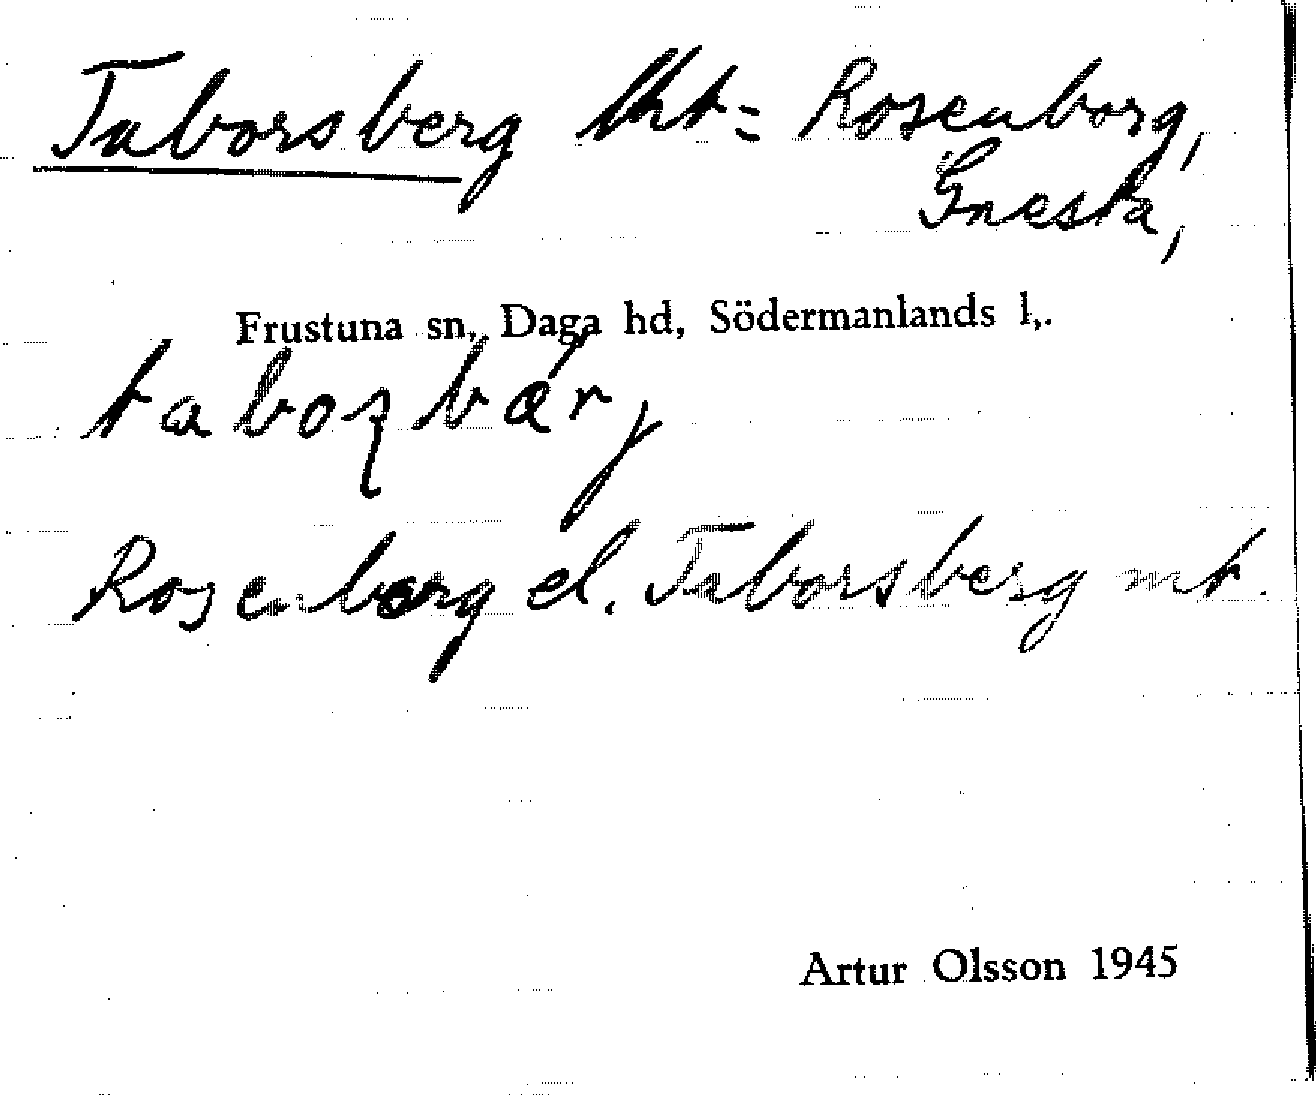 Taborsberg lht = Rosenborg,
Gnesta,
Frustuna sn, Daga hd, Södermanlands l,.
Rosenborg el. Taborsberg mt.
Artur Olsson 1945